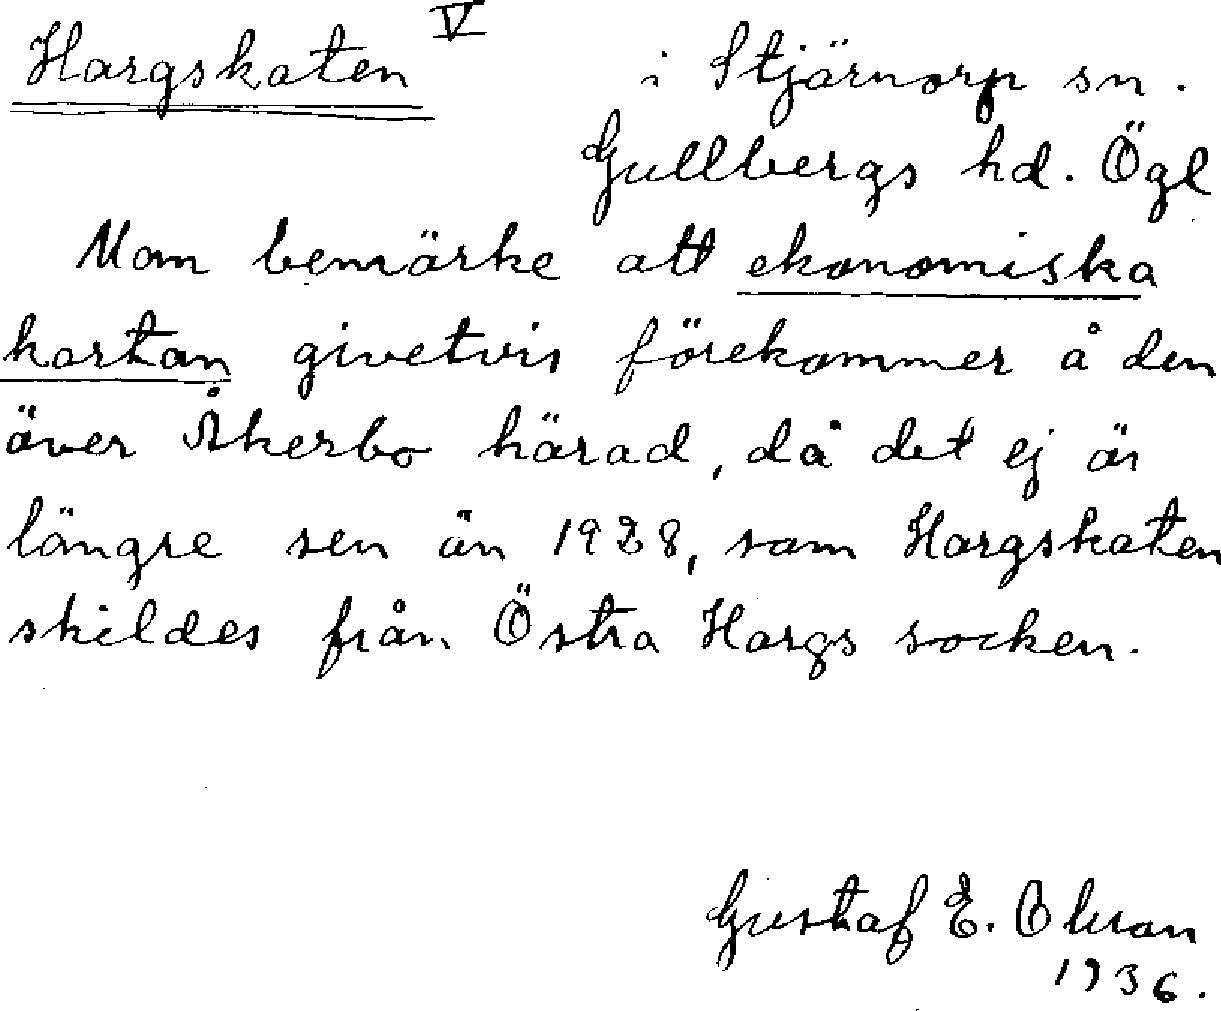 Hargskaten V i Stjärnorp sn.
Gullbergs hd. Ögl
Man bemärke att ekonomiska
kartan givetvis förekommer å den
över Åkerbo härad, då det ej är
längre sen än 1928, som Hargskaten
skildes från Östra Hargs socken.
Gustaf E. Olsson
1936.